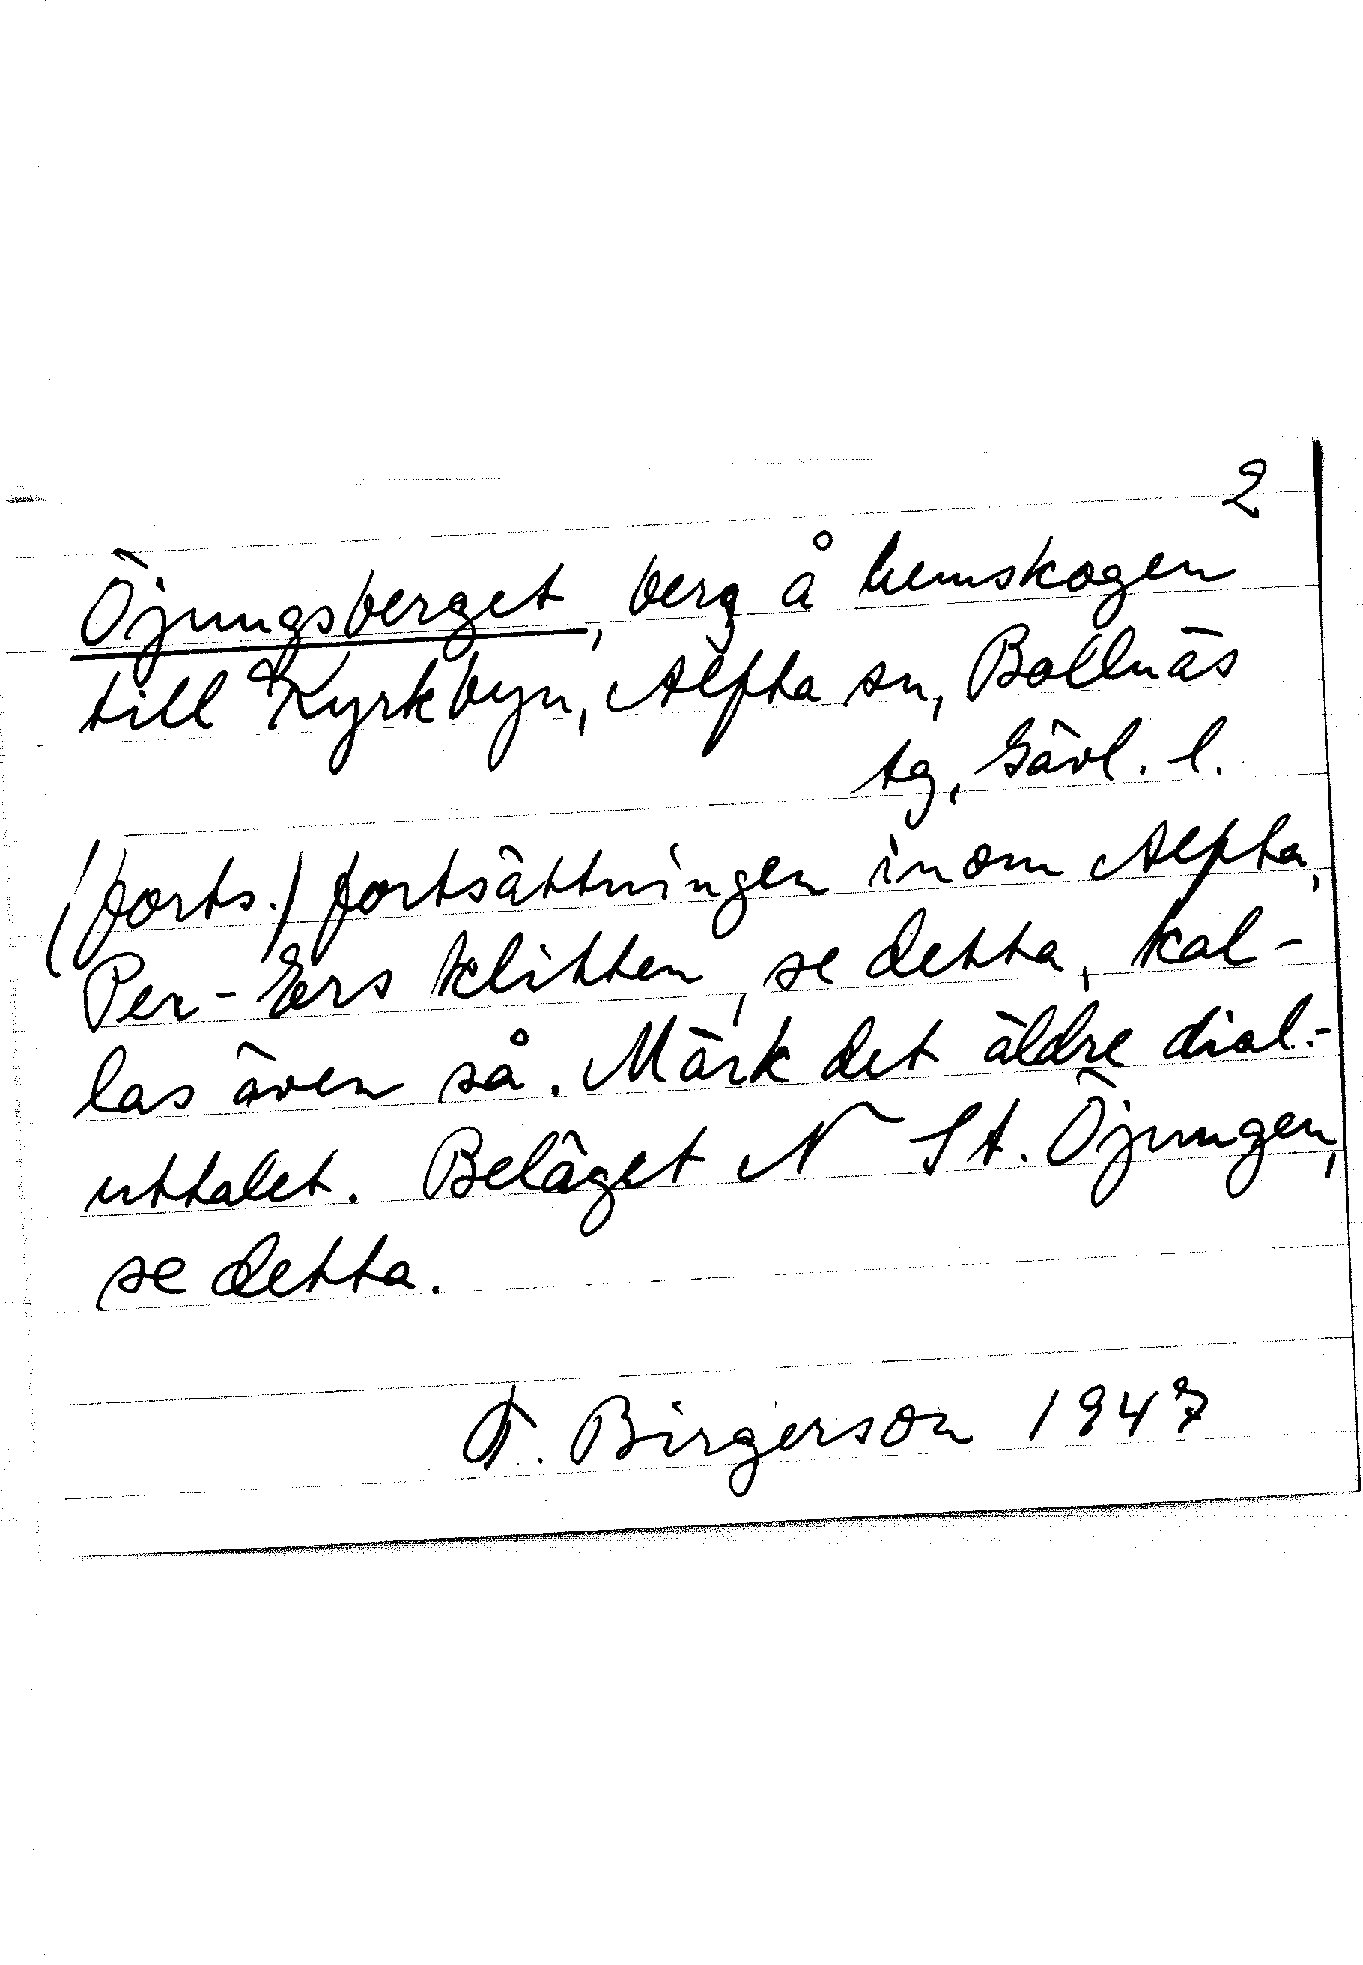 2
Öjungsberget, berg å hemskogen
till Kyrkbyn, Alfta sn, Bollnäs
tg, Gävl. l.
(forts.) fortsättningen inom Alfta,
Per-Ers klitten, se detta, kal-
las även så. Märk det äldre dial.-
uttalet. Beläget N St. Öjungen,
se detta.
F. Birgerson 1947